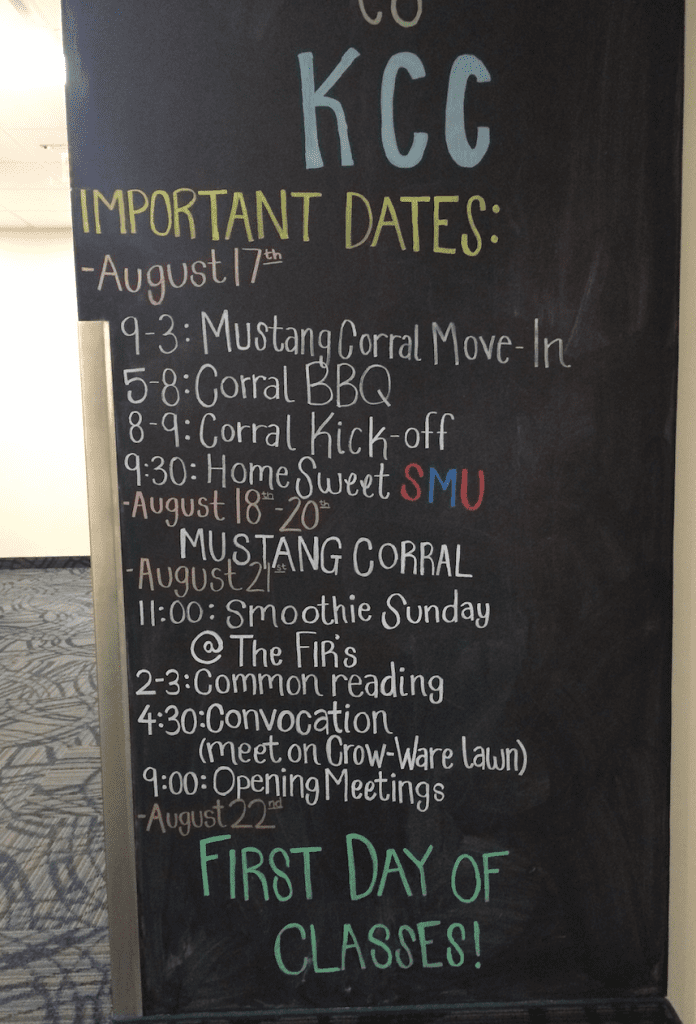 to
KCC
IMPORTANT DATES:
-August 17th
9-3: Mustang Corral Move-In
5-8: Corral BBQ
8-9: Corral Kick-off
9:30: Home Sweet SMU
-August 18th-20th
MUSTANG CORRAL
-August 21st
11:00: Smoothie Sunday
@ The FIR's
2-3: Common reading
4:30: Convocation
(meet on Crow-Ware lawn)
9:00: Opening Meetings
-August 22nd
FIRST DAY OF
CLASSES!